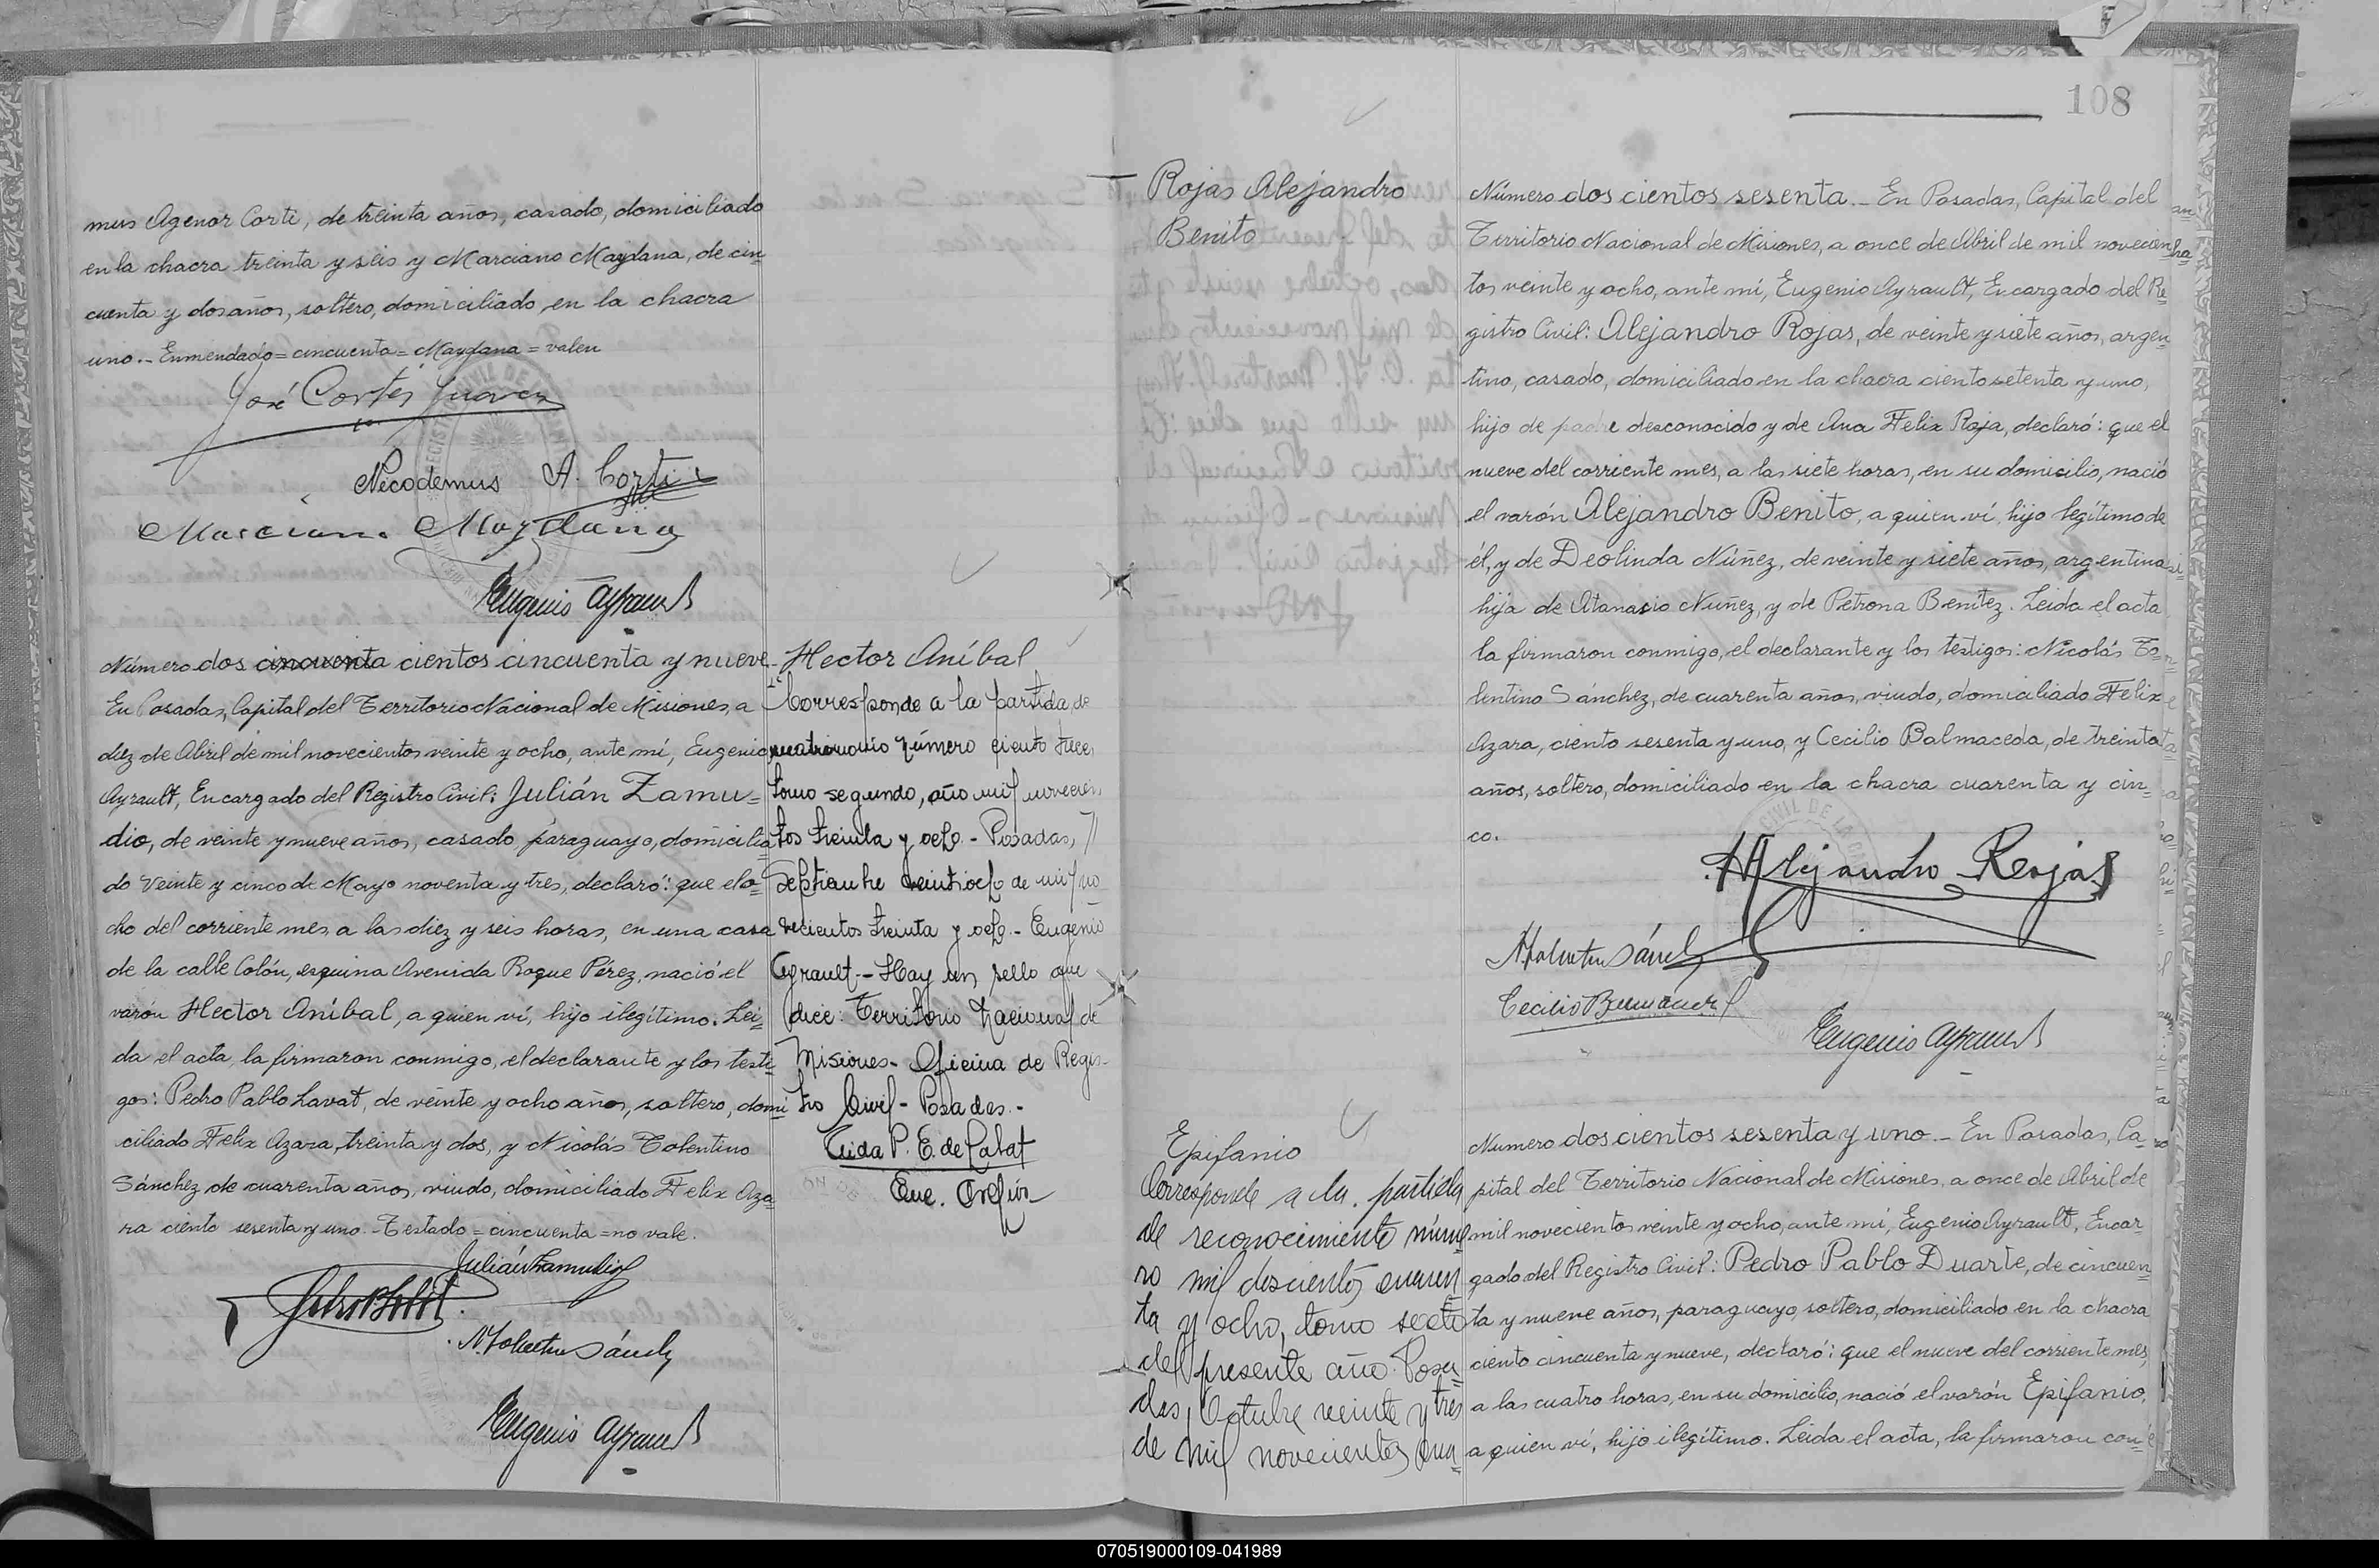 mus Agenor Corti, de treinta años, casado, domiciliado
en la chacra treinta y seis y Marciano Maydana, de cin=
cuenta y dos años, soltero, domiciliado en la chacra
uno.- Enmendado=cincuenta=Maydana=valen
José Cortés Juarez
Nicodemus A. Corti
Marciano Maydana
Eugenio Ayrault
Número dos cincuenta cientos cincuenta y nueve.-
En Posadas, Capital del Territorio Nacional de Misiones, a
diez de Abril de mil novecientos veinte y ocho, ante mí, Eugenio
Ayrault, Encargado del Registro Civil: Julián Zamu=
dio, de veinte y nueve años, casado, paraguayo, domicilia
do Veinte y cinco de Mayo noventa y tres, declaró: que el o=
cho del corriente mes, a las diez y seis horas, en una casa
de la calle Colón, esquina Avenida Roque Pérez, nació el
varón Hector Aníbal, a quien ví, hijo ilegítimo. Leí=
da el acta, la firmaron conmigo, el declarante y los testi=
gos: Pedro Pablo Lavat, de veinte y ocho años, soltero, domi=
ciliado Felix Azara, treinta y dos, y Nicolás Tolentino
Sánchez, de cuarenta años, viudo, domiciliado Felix Aza=
ra ciento sesenta y uno.-Testado=cincuenta=no vale.
Julián Zamudio
N. Tolentino Sánchez
Eugenio Ayrault
Hector Aníbal
Corresponde a la partida de
matrimonio número ciento trece,
tomo segundo, año mil novecien
tos treinta y ocho.- Posadas,
Septiembre veintiocho de mil no
vecientos treinta y ocho.- Eugenio
Ayrault.- Hay un sello que
dice: Territorio Nacional de
Misiones- Oficina de Regis-
tro Civil- Posadas.-
108
Rojas Alejandro
Benito
Número dos cientos sesenta.- En Posadas, Capital del
Territorio Nacional de Misiones, a once de Abril de mil novecien
tos veinte y ocho, ante mí, Eugenio Ayrault, Encargado del Re=
gistro Civil: Alejandro Rojas, de veinte y siete años, argen=
tino, casado, domiciliado en la chacra ciento setenta y uno,
hijo de padre desconocido y de Ana Felix Roja, declaró: que el
nueve del corriente mes, a las siete horas, en su domicilio, nació
el varón Alejandro Benito, a quien ví, hijo legítimo de
él, y de Deolinda Núñez, de veinte y siete años, argentina,
hija de Atanasio Nuñez, y de Petrona Benitez. Leida el acta
la firmaron conmigo, el declarante y los testigos: Nicolás To=
lentino Sánchez, de cuarenta años, viudo, domiciliado Felix
Azara, ciento sesenta y uno, y Cecilio Balmaceda, de treinta
años, soltero, domiciliado en la chacra cuarenta y cin=
co.
Alejandro Rojas
N. Tolentino Sánchez
Cecilio Balmaceda
Eugenio Ayrault
Epifanio
Corresponde a la partida
de reconocimiento núme
ro mil doscientos cuaren
ta y ocho, tomo sexto
del presente año. Posa=
das, Octubre veinte y tres
de mil novecientos cua=
Numero dos cientos sesenta y uno.- En Posadas, Ca=
pital del Territorio Nacional de Misiones, a once de Abril de
mil novecientos veinte y ocho, ante mí, Eugenio Ayrault, Encar
gado del Registro Civil: Pedro Pablo Duarte, de cincuen
ta y nueve años, paraguayo, soltero, domiciliado en la chacra
ciento cincuenta y nueve, declaró: que el nueve del corriente mes,
a las cuatro horas, en su domicilio, nació el varón Epifanio,
a quien ví, hijo ilegítimo. Leida el acta, la firmaron con=
070519000109-041989